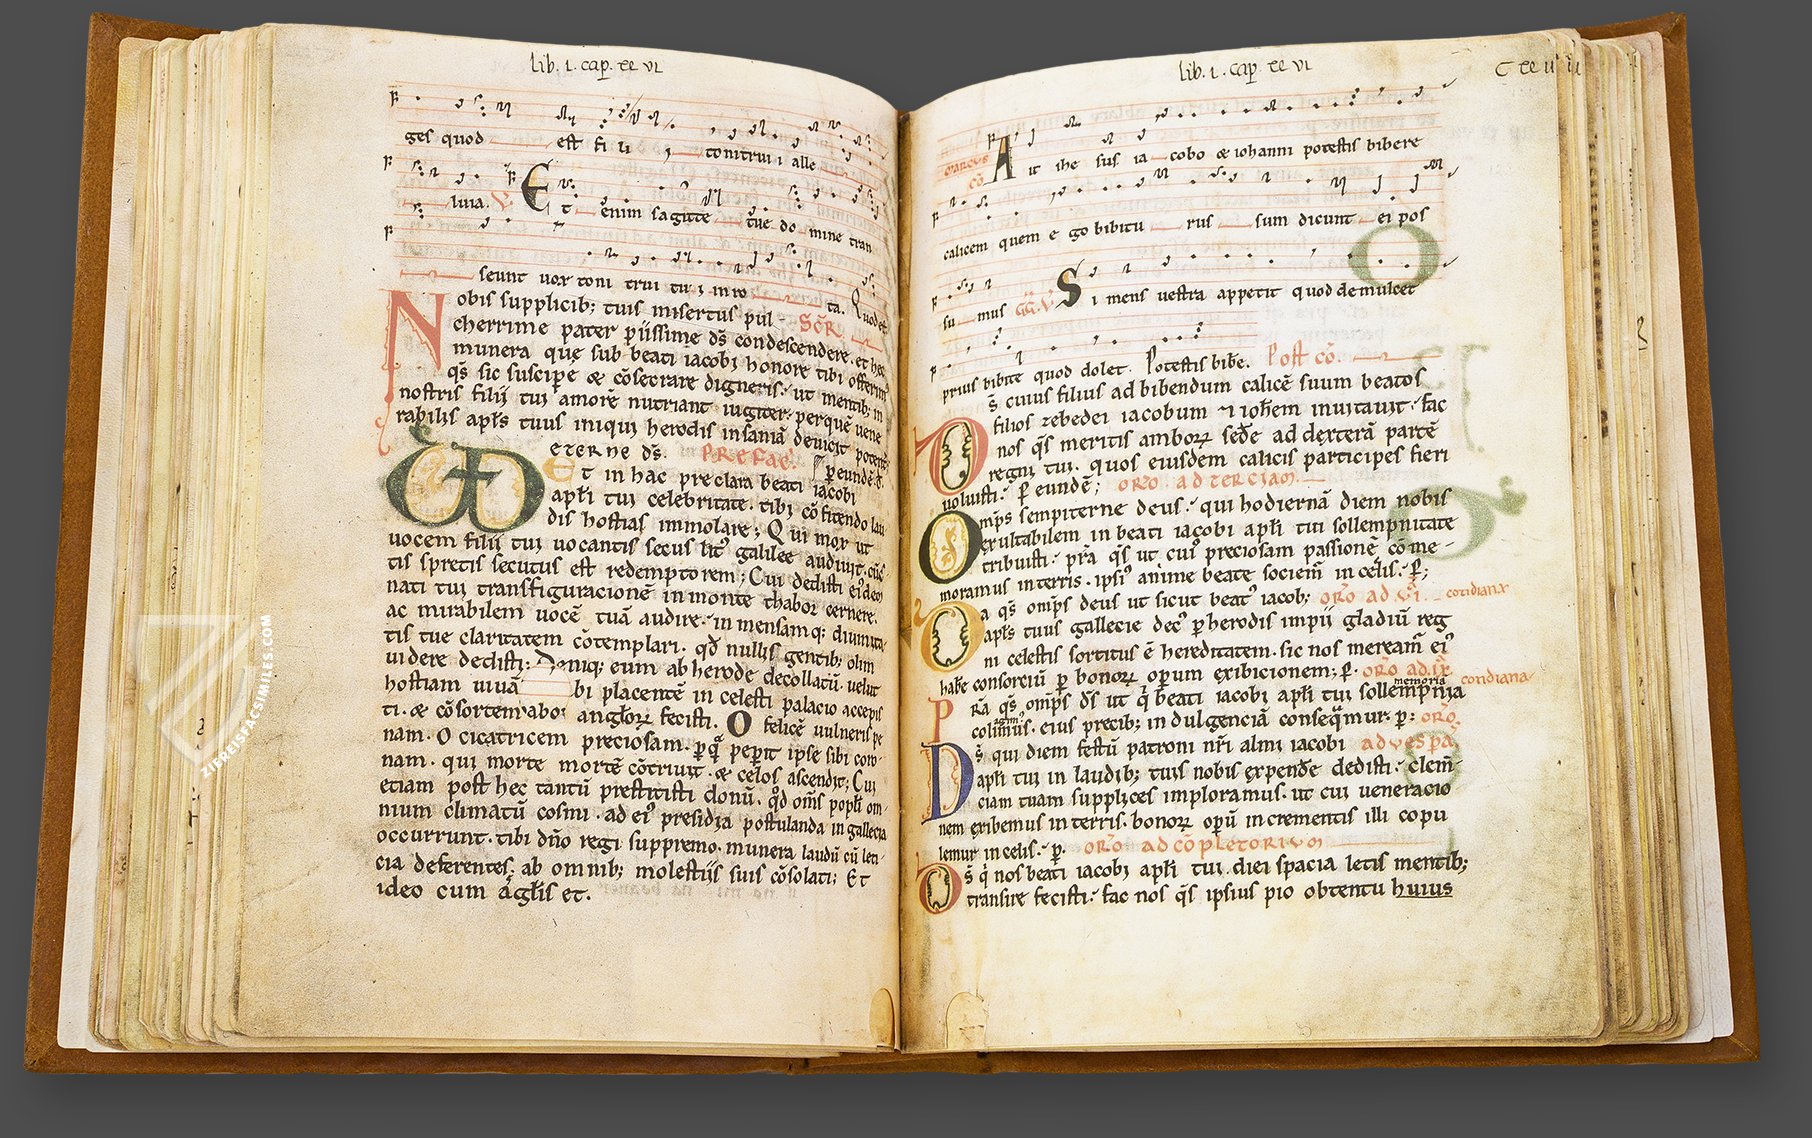 lib. i. cap. xx vi
ges quod est fi lii, tonitrui i alle
luia. V. Et enim sagitte tue do mine tran
seunt vox toni trui tui in ro ta. Quod est
Nobis supplicib; tuis misertus pul- Scr̄.
cherrime pater piissime ds̄ condescendere. et hec
munera que sub beati iacobi honore tibi offerim
qs̄ sic suscipe & cōsecrare digneris. ut mentib; in
nostris filii tui amorē nutriant iugiter. perquē vene
rabilis apl̄s tuus iniqui herodis insaniā devicit potent
eterne ds̄. Prefac̄. p eundē d.
Et in hac preclara beati iacobi
apl̄i tui celebritate. tibi cōfitendo lau
dis hostias immolare; Qui mox ut
vocem filii tui vocantis secus lit' galilee audivit. cūc
tis spretis secutus est redemptorem; Cui dedisti ei'de
nati tui transfiguracionē in monte thabor cernere.
ac mirabilem vocē tuā audire. in mensamq; divinita
tis tue claritatem cōtemplari. qd̄ nullis gentib; olim
videre dedisti; Deniq; eum ab herode decollatū. velut
hostiam vivā bi placentē in celesti palacio accepis
ti. & cōsortem abo angl̄orꝝ fecisti. O felicē vulneris pe
nam. O cicatricem preciosam. p qā pepit ipse sibi coro
nam. qui morte mortē cōtrivit. & celos ascendit; Cui
etiam post hec tantū prestitisti donū. qd̄ om̄s popl̄i om
nium climatū cosmi. ad ei' presidia postulanda in gallecia
occurrunt. tibi dn̄o regi suppremo. munera laudū cū leti
cia deferentes. ab omnib; molestiis suis cōsolati; Et
ideo cum āglis et.
lib. i. cap xx vi
C xx vi
marcus
cō
Ait ihe sus ia cobo & iohanni potestis bibere
calicem quem e go bibitu rus sum dicunt ei pos
su mus V Si mens vestra appetit quod demulcet
prius bibite quod dolet. Potestis bibe. Post cō.
Ds̄ cuius filius ad bibendum calicē suum beatos
filios zebedei iacobum 7 ioh̄em invitavit. fac
nos qs̄ meritis amborꝝ sedē ad dexterā partē
regni tui. quos eiusdem calicis participes fieri
voluisti. p eundē; or̄o ad terciam.
Omps̄ sempiterne deus. qui hodiernā diem nobis
exultabilem in beati iacobi apl̄i tui sollempnitate
tribuisti. pr̄a qs̄ ut cui' preciosam passionē cōme-
moramus in terris. ipsi' anime beate sociem̄ in celis. p;
Da qs̄ omps̄ deus ut sicut beat' iacob; or̄o ad vi. cotidiana
apl̄s tuus gallecie dec' p herodis impii gladiū reg
ni celestis sortitus ē hereditatem. sic nos meream̄ ei'
habe consorciū p bonorꝝ operum exibicionem; p. or̄o ad ix cotidiana
Pr̄a qs̄ omps̄ ds̄ ut q̄ beati iacobi apl̄i tui sollempnia memoria
colimus. eius precib; indulgenciā conseq̄mur. p; or̄o
Ds̄ qui diem festū patroni nr̄i almi iacobi ad vespa
apl̄i tui in laudib; tuis nobis expende dedisti. clem-
ciam tuam supplices imploramus. ut cui veneracio
nem exibemus in terris. bonorꝝ opū incrementis illi copu
lemur in celis. p. or̄o ad cōpletorium
Ds̄ q̄ nos beati iacobi apl̄i tui diei spacia letis mentib;
transire fecisti. fac nos qs̄ ipsius pio obtentu huius
ZIEREISFACSIMILES.COM